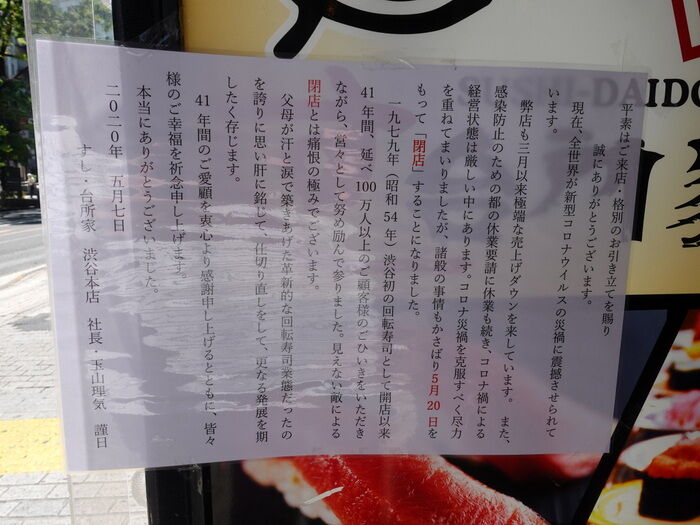 平素はご来店・格別のお引き立てを賜り
誠にありがとうございます。
現在、全世界が新型コロナウイルスの災禍に震撼させられて
います。
弊店も三月以来極端な売上げダウンを来しています。 また、
感染防止のための都の休業要請に休業も続き、コロナ禍による
経営状態は厳しい中にあります。コロナ災禍を克服すべく尽力
を重ねてまいりましたが、諸般の事情もかさばり5月20日を
もって「閉店」することになりました。
一九七九年（昭和54年）渋谷初の回転寿司として開店以来
41年間、延べ100万人以上のご顧客様のごひいきをいただき
ながら、営々として努め励んで参りました。見えない敵による
閉店とは痛恨の極みでございます。
父母が汗と涙で築きあげた革新的な回転寿司業態だったの
を誇りに思い肝に銘じて、仕切り直しをして、更なる発展を期
したく存じます。
41年間のご愛顧を衷心より感謝申し上げるとともに、皆々
様のご幸福を祈念申し上げます。
本当にありがとうございました。
二〇二〇年 五月七日
すし・台所家 渋谷本店 社長・玉山理気 謹白
SUSHI-DAIDO